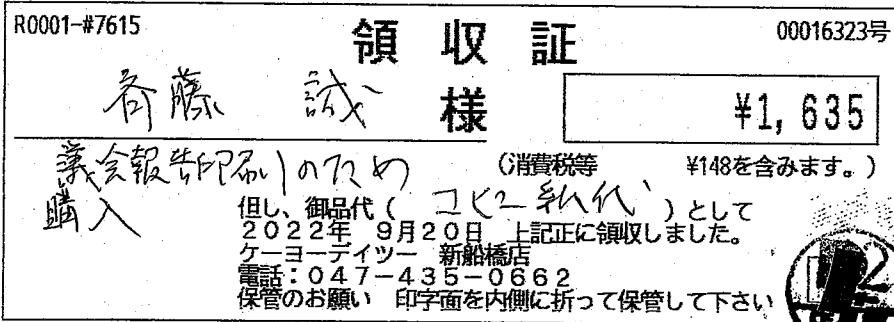 R0001-#7615
領収証
00016323号
斉藤 誠 様
¥1,635
議会報告印刷のため
購入
(消費税等 ¥148を含みます。)
但し、御品代(コピー紙代)として
2022年 9月20日 上記正に領収しました。
ケーヨーデイツー 新船橋店
電話:047-435-0662
保管のお願い 印字面を内側に折って保管して下さい